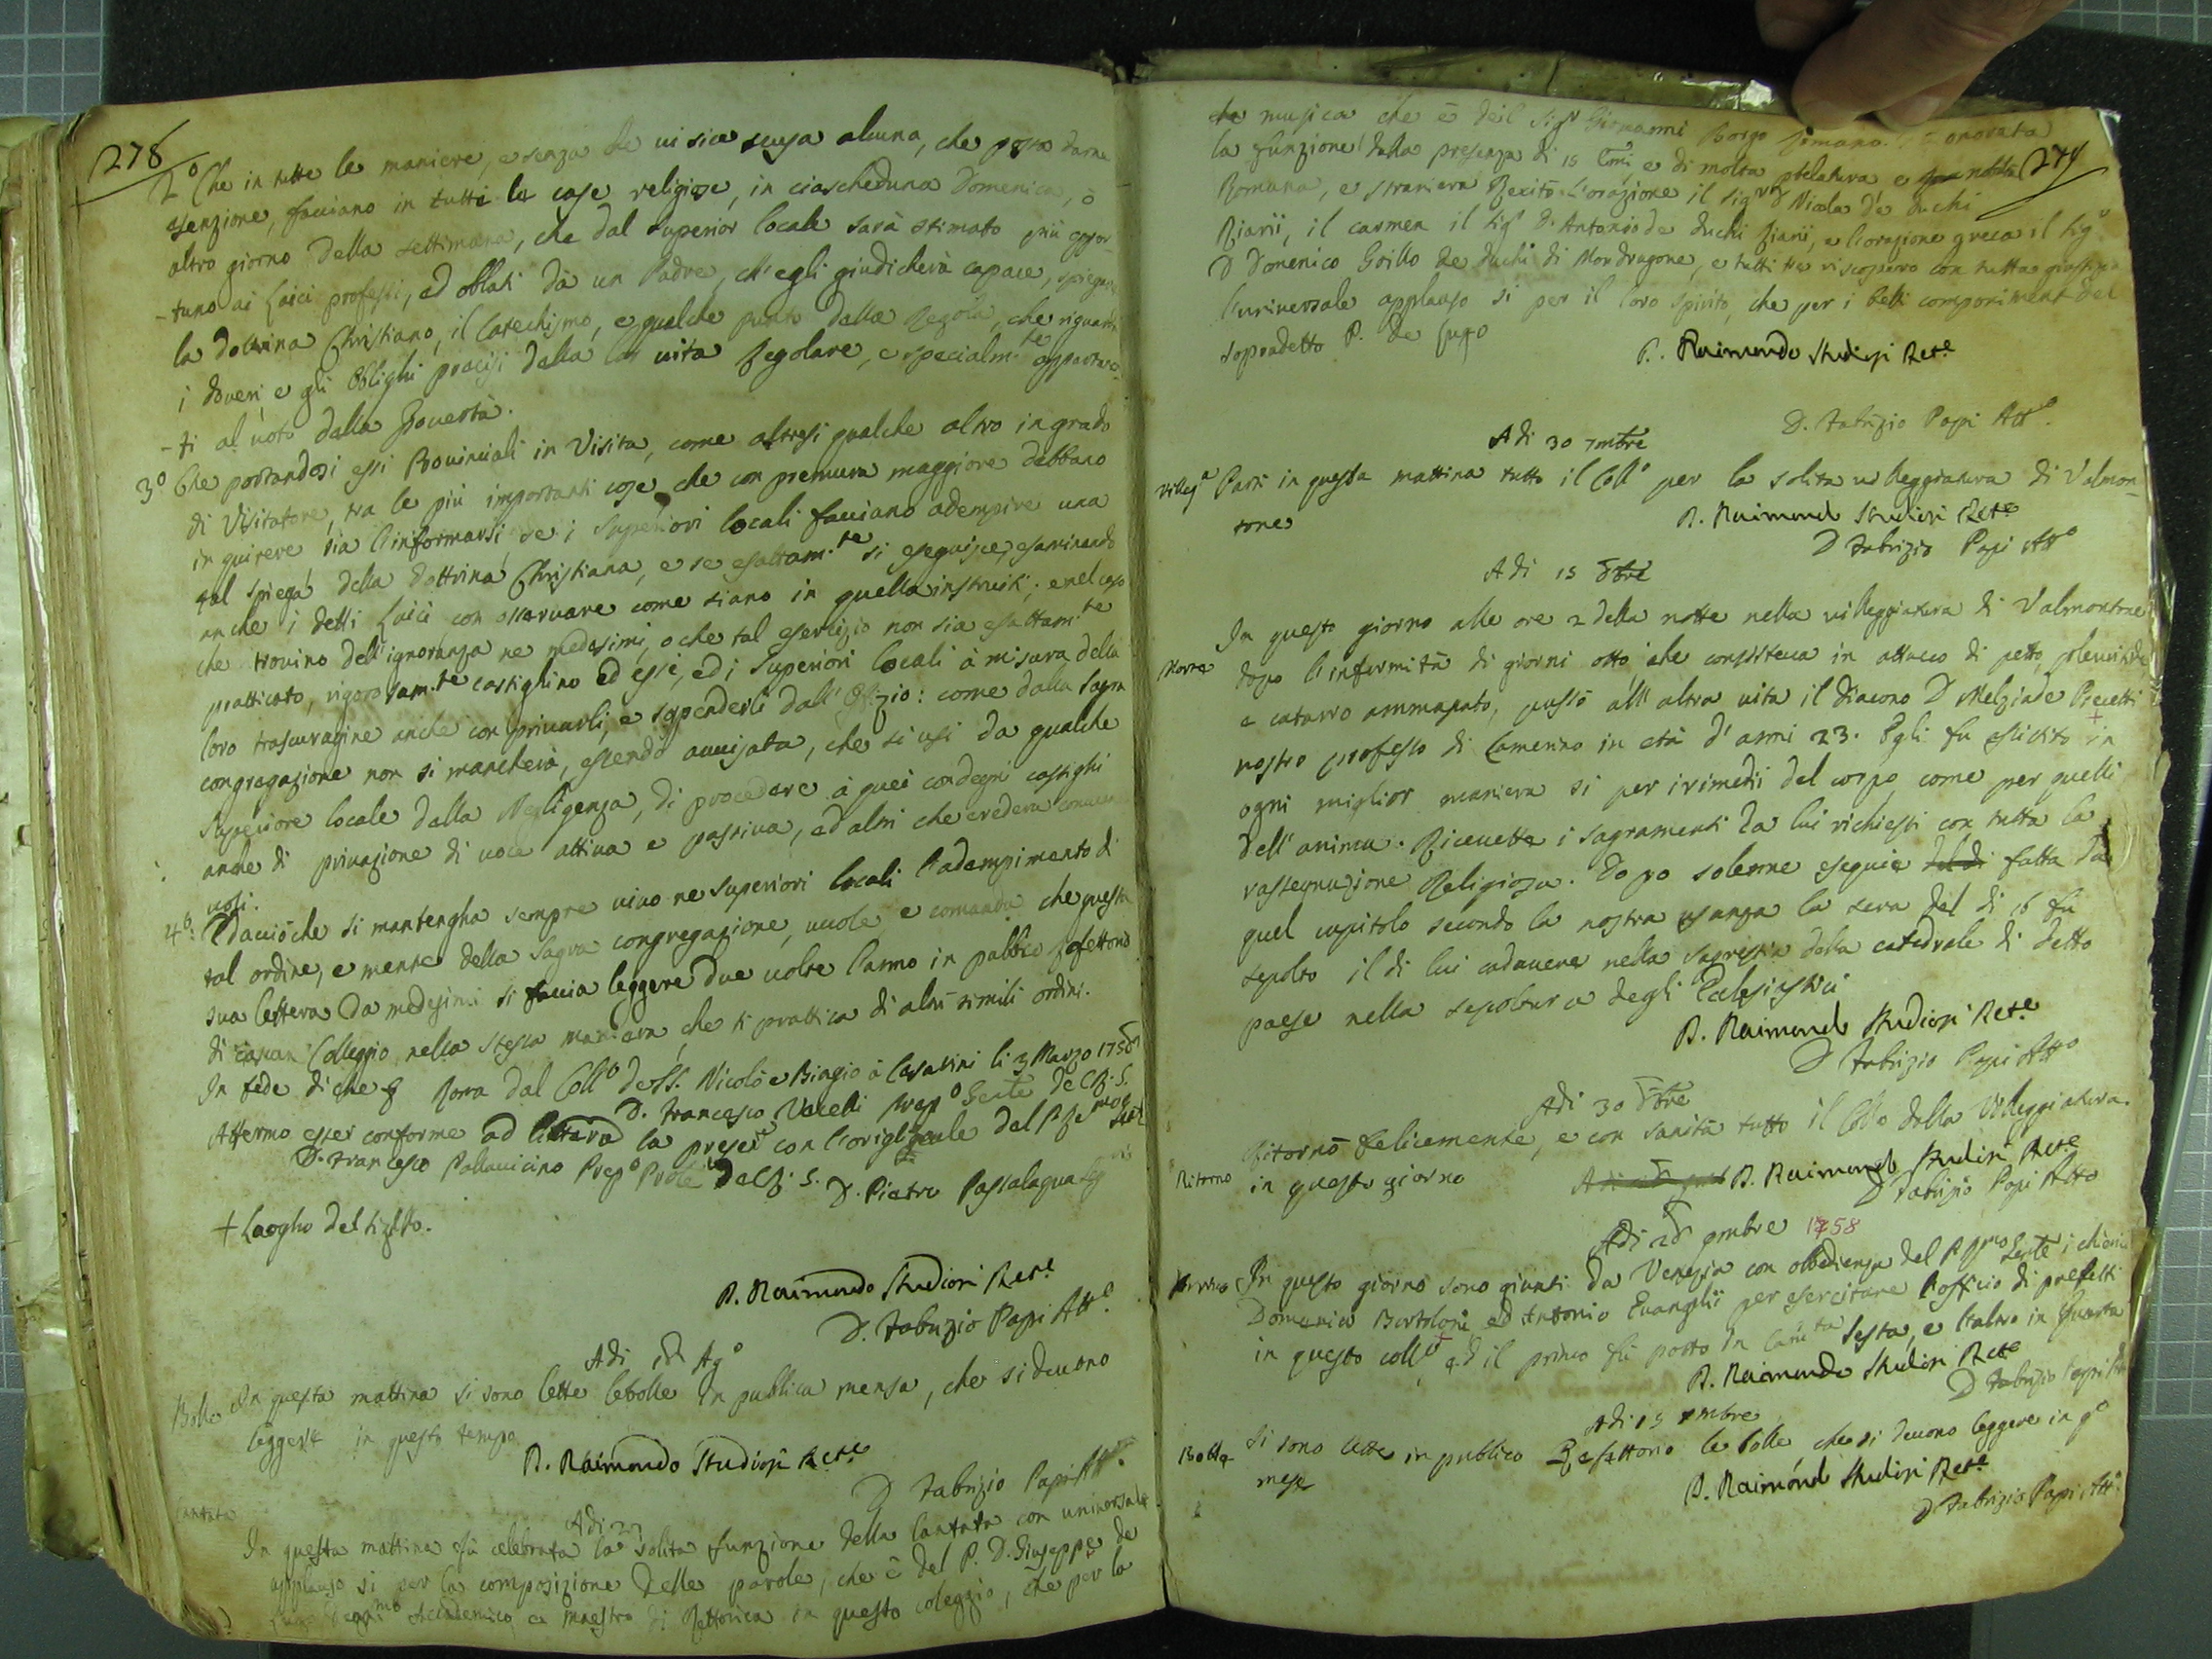 278
2º Che in tutte le maniere, e senza che vi sia scusa alcuna, che possa darne
esenzione, facciano in tutti le case religiose, in ciascheduna Domenica, ò
altro giorno della settimana, che dal Superior locale sarà stimato più oppor-
-tuno ai Laici professi, ed oblati dà un Padre, ch'egli giudicherà capace, spiegare
la dottrina Christiana, il Catechismo, e qualche punto della Regola, che riguardi
i doveri, e gli Oblighi precisi della lor vita Regolare, e specialm.te appartenen
-ti al voto della Povertà.
3º Che portandosi essi Provinciali in Visita, come altresi qualche altro in grado
di Visitatore, tra le più importanti cose che con premura maggiore debbano
inquirere, sia l'informarsi, se i Superiori locali facciano adempire una
tal spiega della dottrina Christiana, e se esattam.te si eseguisce, esaminando
anche i detti Laici con osservare come siano in quella instruiti; e nel caso
che trovino dell'ignoranza ne medesimi, o che tal esercizio non sia esattam.te
pratticato, rigorosam.te castighino ed essi, ed i Superiori locali à misura della
loro trascuragine anche con privarli, e sospenderli dall'Offizio: come dalla Sagra
congregazione non si mancherà, essendo avvisata, che si usi da qualche
Superiore locale della Negligenza, di procedere à quei condegni castighi
anche di privazione di voce attiva e passiva, ed altri che crederà conve
voli.
4º: Ed acciòche si mantengha sempre vivo ne superiori locali l'adempimento di
tal ordine, e mente della Sagra congregazione, vuole e comanda che questa
sua lettera da medesimi si faccia leggere due volte l'anno in publico Refettorio
di ciascun Collegio nella stessa maniera, che si prattica di altri simili ordini.
In fede di che &. Roma dal Coll.o de SS. Nicolò e Biagio à Cesarini li 3 Marzo 1758
D. Francesco Vecelli Prep.o Gen̄le de CR. S.
Attermo esser conforme ad litteram la presente con l'originale del
D. Francesco Pallavicino Prep.o Prov̄le de CR. S. D. Pietro Passalaqua Seg
+ Luogho del Sigillo.
P. Raimondo Studiosi Ret.e
D. Fabrizio Papi Att.o
Adi Ag.o
Bolle In questa mattina si sono lette le bolle in publica mensa, che si devono
leggere in questo tempo
P. Raimondo Studiosi Ret.e
D Fabrizio Papi Att.o
Cantata
Adi 27
In questa mattina fù celebrata la solita funzione della Cantata con universale
applauso si per la composizione delle parole, che è del P. D. Giuseppe de
Accademico, e maestro di Rettorica in questo colegio, che per la
279
musica che è del Sig.r Giovanni Borgo romano. onorata
la funzione dalla presenza di 15 Cen̄i, e di molta prelatura e nobiltà
Romana, e straniera Recitò l'orazione il Sig.r D Nicola de duchi
Riarii, il carmen il Sig.r D. Antonio de duchi Riarii, e l'orazione greca il Sig.r
D Domenico Grillo de duchi di Mondragone, e tutti tre riscossero con tutta giustizia
l'universale applauso si per il loro spirito, che per i belli componimenti del
sopradetto P. de Lugo
P. Raimondo Studiosi Ret.e
D. Fabrizio Papi Att.o
Adi 30 7mbre
Villeg.a Partì in questa mattina tutto il Coll.o per la solita villeggiatura di Valmon-
tone
P. Raimondo Studiosi Ret.e
D Fabrizio Papi Att.o
Adi 15 8bre
Morte In questo giorno alle ore 2 della notte nella villeggiatura di Valmontone
dopo l'infermità di giorni otto, che consisteva in attacco di petto,
e catarro ammarato, passò all'altra vita il Diacono D Melziade Precetti
nostro professo di Camerino in età d'anni 23. Egli fu assistito in
ogni miglior maniera si per i rimedii del corpo, come per quelli
dell'anima. Ricevette i sagramenti da lui richiesti con tutta la
rassegnazione Religiosa. Dopo solenne esequie fatta da
quel capitolo secondo la nostra usanza la sera del di 16 fu
sepolto il di lui cadavere nella sagrestia della catedrale di detto
paese nella sepoltura degli Eclesiastici
P. Raimondo Studiosi Ret.e
D Fabrizio Papi Att.o
Adi 30 8bre
Ritorno Ritornò felicemente, e con sanità tutto il Coll.o dalla Villeggiatura
in questo giorno
P. Raimondo Studiosi Ret.e
D Fabrizio Papi Att.o
Adi 28 9mbre 1758
Arrivo In questo giorno sono giunti da Venezia con obbedienza del P. Gen̄le i chierici
Domenico Bortolosi ed Antonio Evangelii per esercitare l'officio di prefetti
in questo coll.o, e il primo fù posto in Cam.ta Sesta, e l'altro in Quarta
P. Raimondo Studiosi Ret.e
D Fabrizio Papi Att.o
Adi 15 Xmbre
Bolle Si sono lette in publico Refettorio le bolle che si devono leggere in q.o
mese
P. Raimondo Studiosi Ret.e
D Fabrizio Papi Att.o